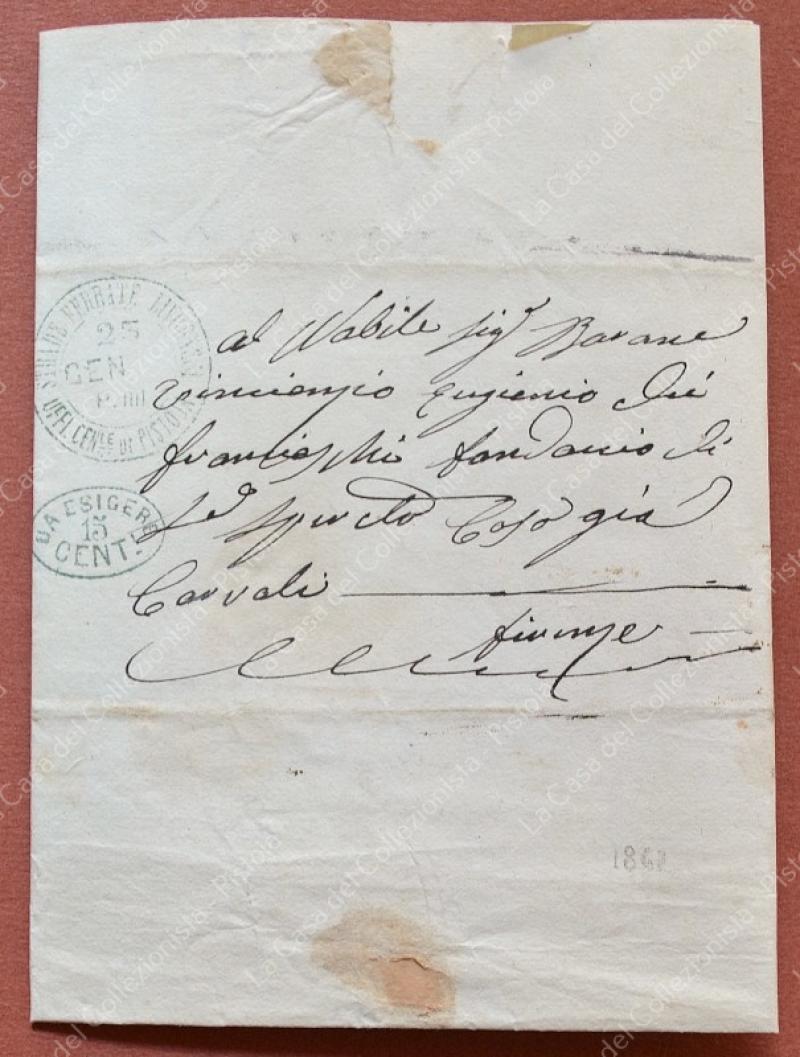 STRADE FERRATE LIVORNESI
25
GEN
P. IIII
UFFI. CENLE DI PISTOIA
DA ESIGERE
15
CENT.
al Nobile Sigr Barone
Vincienzio Eugienio dei
francieschi fondacio di
Sto Spirito Caso già
firenze
La Casa del Collezionista - Pistoia